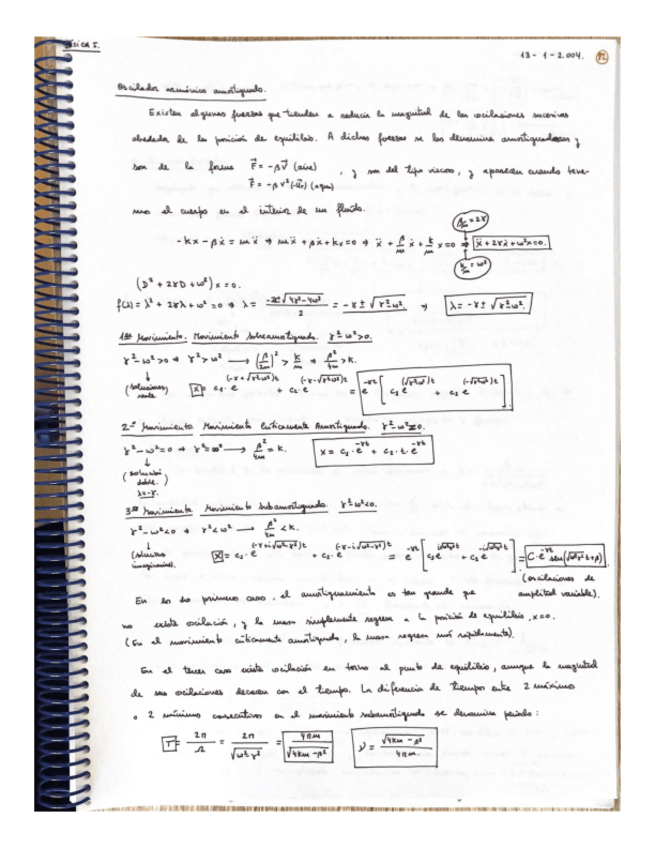 FÍSICA I.
13 - 1 - 2.004.
Oscilador armónico amortiguado.
Existen algunas fuerzas que tienden a reducir la magnitud de las oscilaciones sucesivas
alrededor de la posición de equilibrio. A dichas fuerzas se las denomina amortiguadoras y
son de la forma F⃗ = -βv⃗ (aire) , y son del tipo viscoso, y aparecen cuando tene-
F⃗ = -βv² (agua)
mos el cuerpo en el interior de un fluido.
β/m = 2γ
-kx - βẋ = mẍ ⇒ mẍ + βẋ + kx = 0 ⇒ ẍ + β/m ẋ + k/m x = 0 ⇒ ẍ + 2γẋ + ω²x = 0.
k/m = ω²
(D² + 2γD + ω²) x = 0.
f(λ) = λ² + 2γλ + ω² = 0 ⇒ λ = (-2γ ± √(4γ² - 4ω²))/2 = -γ ± √(γ² - ω²) ⇒ λ = -γ ± √(γ² - ω²)
1er Movimiento. Movimiento Sobreamortiguado. γ² - ω² > 0.
γ² - ω² > 0 ⇒ γ² > ω² → (β/2m)² > k/m ⇒ β²/4m > k.
(soluciones reales. X = c₁·e^(-γ+√(γ²-ω²))t + c₂·e^(-γ-√(γ²-ω²))t = e^-γt [c₁e^(√(γ²-ω²))t + c₂e^(-√(γ²-ω²))t]
2º Movimiento Movimiento Críticamente Amortiguado. γ² - ω² = 0.
γ² - ω² = 0 ⇒ γ² = ω² → β²/4m = k. X = c₁·e^-γt + c₂·t·e^-γt
(solución
doble. )
λ = -γ.
3er Movimiento Movimiento Subamortiguado γ² - ω² < 0.
γ² - ω² < 0 ⇒ γ² < ω² → β²/4m < k.
(soluciones imaginarias). X = c₁·e^(-γ+i√(ω²-γ²))t + c₂·e^(-γ-i√(ω²-γ²))t = e^-γt [c₁e^i√(ω²-γ²)t + c₂e^-i√(ω²-γ²)t] = C·e^-γt sen(√(ω²-γ²)t + φ)
(oscilaciones de
amplitud variable).
En los dos primeros casos, el amortiguamiento es tan grande que
no existe oscilación, y la masa simplemente regresa a la posición de equilibrio, x=0.
(En el movimiento críticamente amortiguado, la masa regresa más rápidamente).
En el tercer caso existe oscilación en torno al punto de equilibrio, aunque la magnitud
de sus oscilaciones decaen con el tiempo. La diferencia de tiempo entre 2 máximos
o 2 mínimos consecutivos en el movimiento subamortiguado se denomina periodo:
T = 2π/Ω = 2π/√(ω²-γ²) = 4πm/√(4km - β²) ν = √(4km - β²)/4πm.